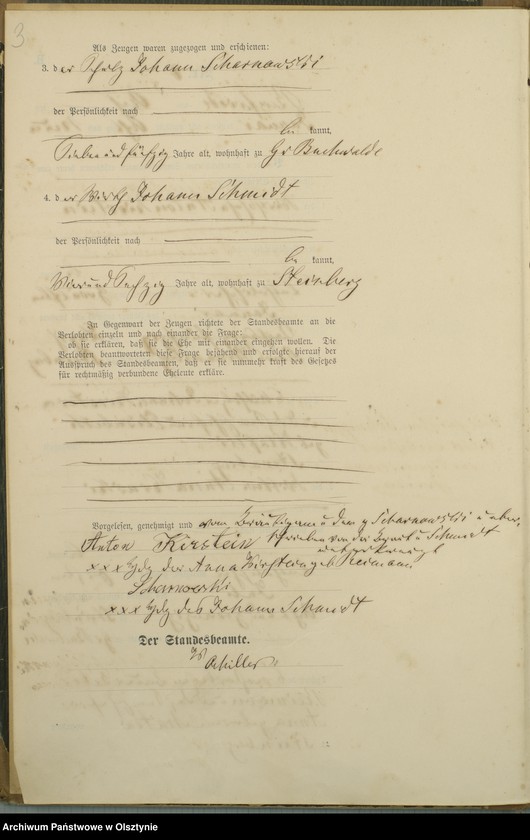 3
Als Zeugen waren zugezogen und erschienen:
3. der Schulz Johann Scharnowski
der Persönlichkeit nach
be kannt,
Sieben und fünfzig Jahre alt, wohnhaft zu Gr Buchwalde
4. der Wirth Johann Schmidt
der Persönlichkeit nach
be kannt,
Vier und Sechzig Jahre alt, wohnhaft zu Steinberg
In Gegenwart der Zeugen richtete der Standesbeamte an die
Verlobten einzeln und nach einander die Frage:
ob sie erklären, daß sie die Ehe mit einander eingehen wollen. Die
Verlobten beantworteten diese Frage bejahend und erfolgte hierauf der
Ausspruch des Standesbeamten, daß er sie nunmehr kraft des Gesetzes
für rechtmäßig verbundene Eheleute erkläre.
Vorgelesen, genehmigt und vom Bräutigam u dem p Scharnowski u
schrieben von der Braut u Schmidt
Anton Kirstein
unterkreuzt
xxx Hdz der Anna Kirstein geb
Scharnowski
xxx Hdz des Johann Schmidt
Der Standesbeamte.
Achiller
Archiwum Państwowe w Olsztynie